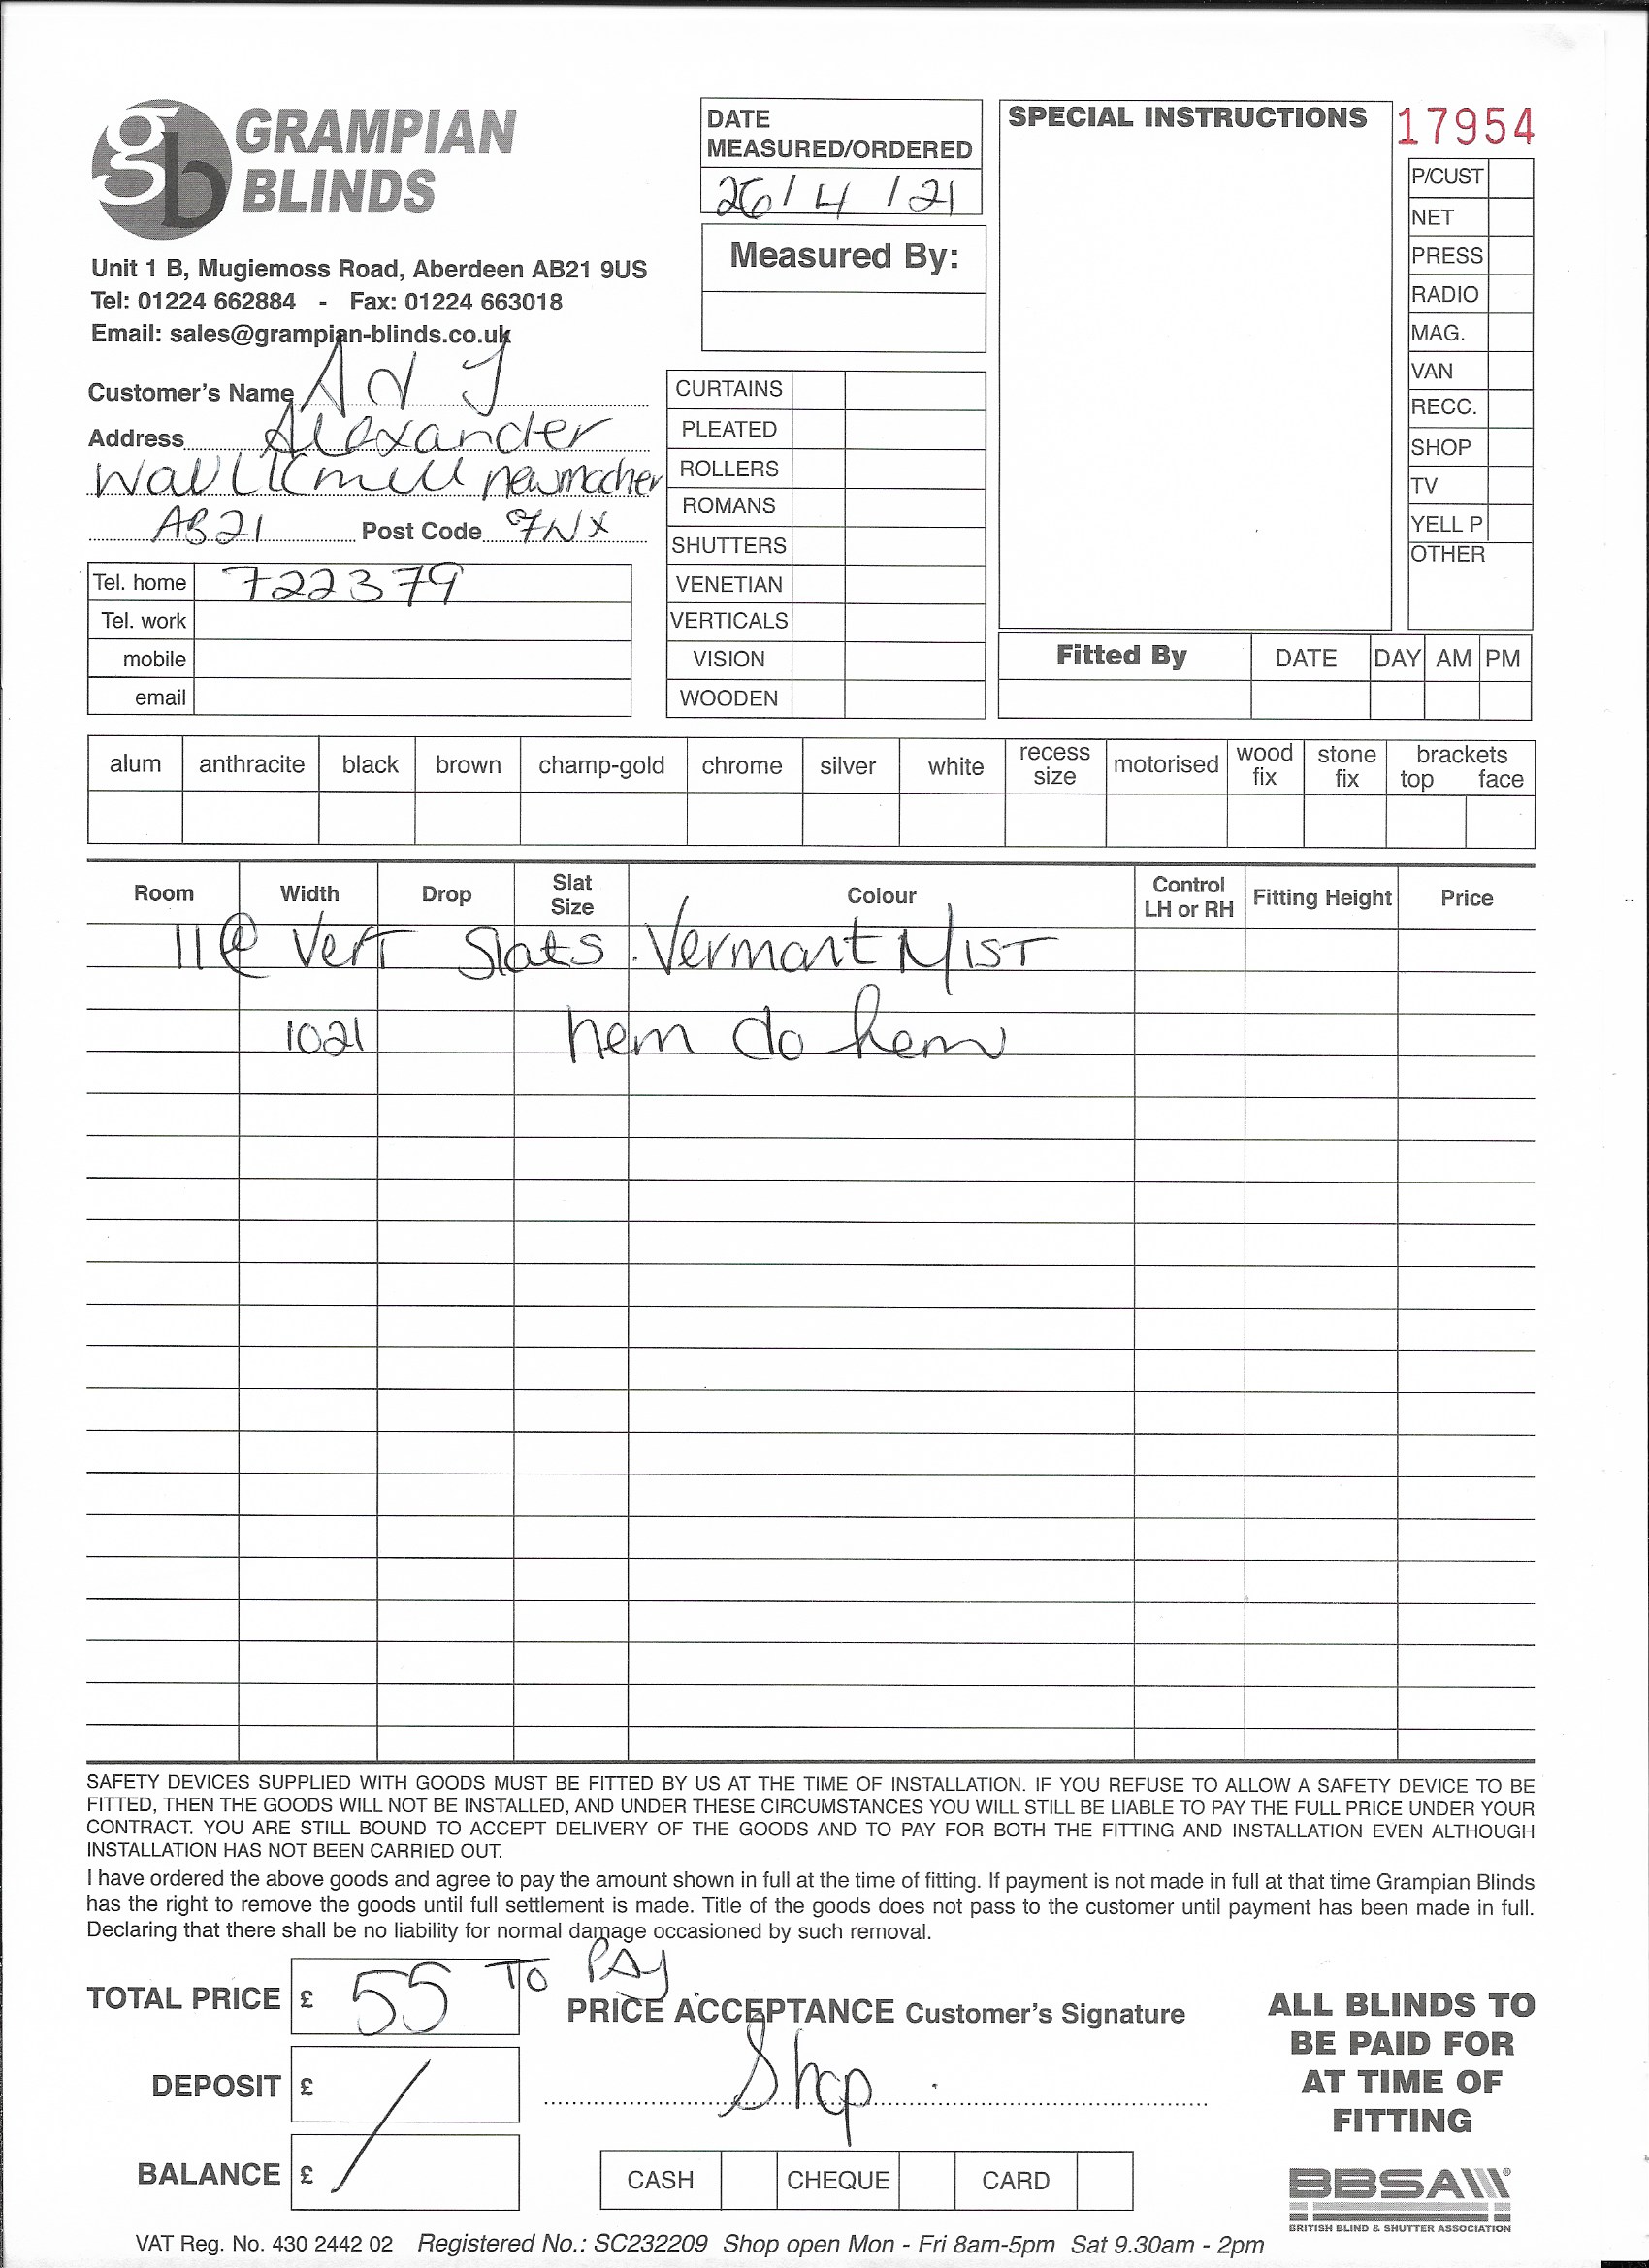 gb GRAMPIAN
BLINDS
Unit 1 B, Mugiemoss Road, Aberdeen AB21 9US
Tel: 01224 662884 - Fax: 01224 663018
Email: sales@grampian-blinds.co.uk
DATE
MEASURED/ORDERED
26/4/21
Measured By:
SPECIAL INSTRUCTIONS
17954
P/CUST
NET
PRESS
RADIO
MAG.
VAN
RECC.
SHOP
TV
YELL P
OTHER
Customer's Name A J
Address Alexander
newmacher
AB21 Post Code 7NX
Tel. home 722379
Tel. work
mobile
email
CURTAINS
PLEATED
ROLLERS
ROMANS
SHUTTERS
VENETIAN
VERTICALS
VISION
WOODEN
Fitted By DATE DAY AM PM
alum anthracite black brown champ-gold chrome silver white recess size motorised wood fix stone fix brackets top face
Room Width Drop Slat Size Colour Control LH or RH Fitting Height Price
11@ Vert Slats. Vermont MIST
1021 hem do hem
SAFETY DEVICES SUPPLIED WITH GOODS MUST BE FITTED BY US AT THE TIME OF INSTALLATION. IF YOU REFUSE TO ALLOW A SAFETY DEVICE TO BE
FITTED, THEN THE GOODS WILL NOT BE INSTALLED, AND UNDER THESE CIRCUMSTANCES YOU WILL STILL BE LIABLE TO PAY THE FULL PRICE UNDER YOUR
CONTRACT. YOU ARE STILL BOUND TO ACCEPT DELIVERY OF THE GOODS AND TO PAY FOR BOTH THE FITTING AND INSTALLATION EVEN ALTHOUGH
INSTALLATION HAS NOT BEEN CARRIED OUT.
I have ordered the above goods and agree to pay the amount shown in full at the time of fitting. If payment is not made in full at that time Grampian Blinds
has the right to remove the goods until full settlement is made. Title of the goods does not pass to the customer until payment has been made in full.
Declaring that there shall be no liability for normal damage occasioned by such removal.
TOTAL PRICE £ 55 TO PAY
PRICE ACCEPTANCE Customer's Signature
DEPOSIT £ /
Shop
BALANCE £
CASH CHEQUE CARD
ALL BLINDS TO
BE PAID FOR
AT TIME OF
FITTING
BBSA
BRITISH BLIND & SHUTTER ASSOCIATION
VAT Reg. No. 430 2442 02 Registered No.: SC232209 Shop open Mon - Fri 8am-5pm Sat 9.30am - 2pm